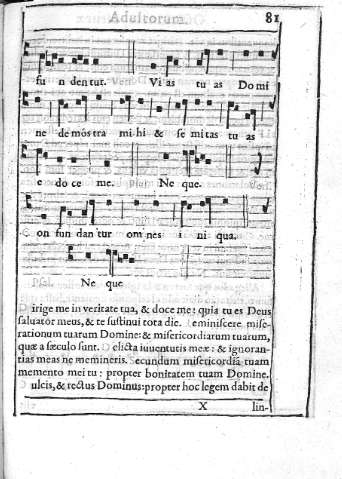 Adultorum. 81
fu n dentur. Vers. Vi as tu as Domi
ne demõstra mi hi & se mi tas tu as
e do ce me. Ne que.
on fun dan tur om nes i ni qua.
Ne que
irige me in veritate tua, & doce me: quia tu es Deus
saluator meus, & te sustinui tota die. eminiscere mise-
rationum tuarum Domine: & misericordiarum tuarum,
quæ a sæculo sunt. elicta iuuentutis meæ: & ignoran-
tias meas ne memineris. ecundum misericordiã tuam
memento mei tu: propter bonitatem tuam Domine.
ulcis, & rectus Dominus: propter hoc legem dabit de
X lin-